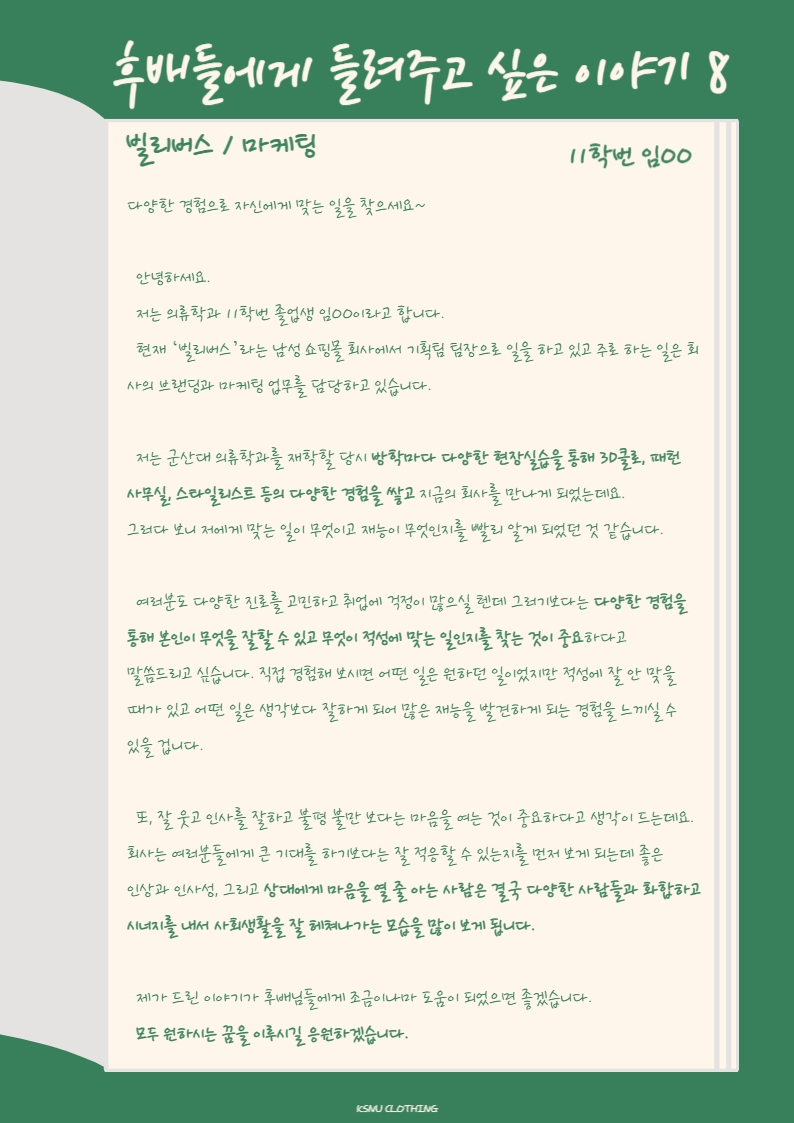 후배들에게 들려주고 싶은 이야기 8
빌리버스 / 마케팅
11학번 임00
다양한 경험으로 자신에게 맞는 일을 찾으세요~
안녕하세요.
저는 의류학과 11학번 졸업생 임00이라고 합니다.
현재 ‘빌리버스’라는 남성 쇼핑몰 회사에서 기획팀 팀장으로 일을 하고 있고 주로 하는 일은 회
사의 브랜딩과 마케팅 업무를 담당하고 있습니다.
저는 군산대 의류학과를 재학할 당시 방학마다 다양한 현장실습을 통해 3D클로, 패턴
사무실, 스타일리스트 등의 다양한 경험을 쌓고 지금의 회사를 만나게 되었는데요.
그러다 보니 저에게 맞는 일이 무엇이고 재능이 무엇인지를 빨리 알게 되었던 것 같습니다.
여러분도 다양한 진로를 고민하고 취업에 걱정이 많으실 텐데 그러기보다는 다양한 경험을
통해 본인이 무엇을 잘할 수 있고 무엇이 적성에 맞는 일인지를 찾는 것이 중요하다고
말씀드리고 싶습니다. 직접 경험해 보시면 어떤 일은 원하던 일이었지만 적성에 잘 안 맞을
때가 있고 어떤 일은 생각보다 잘하게 되어 많은 재능을 발견하게 되는 경험을 느끼실 수
있을 겁니다.
또, 잘 웃고 인사를 잘하고 불평 불만 보다는 마음을 여는 것이 중요하다고 생각이 드는데요.
회사는 여러분들에게 큰 기대를 하기보다는 잘 적응할 수 있는지를 먼저 보게 되는데 좋은
인상과 인사성, 그리고 상대에게 마음을 열 줄 아는 사람은 결국 다양한 사람들과 화합하고
시너지를 내서 사회생활을 잘 헤쳐나가는 모습을 많이 보게 됩니다.
제가 드린 이야기가 후배님들에게 조금이나마 도움이 되었으면 좋겠습니다.
모두 원하시는 꿈을 이루시길 응원하겠습니다.
KSNU CLOTHING